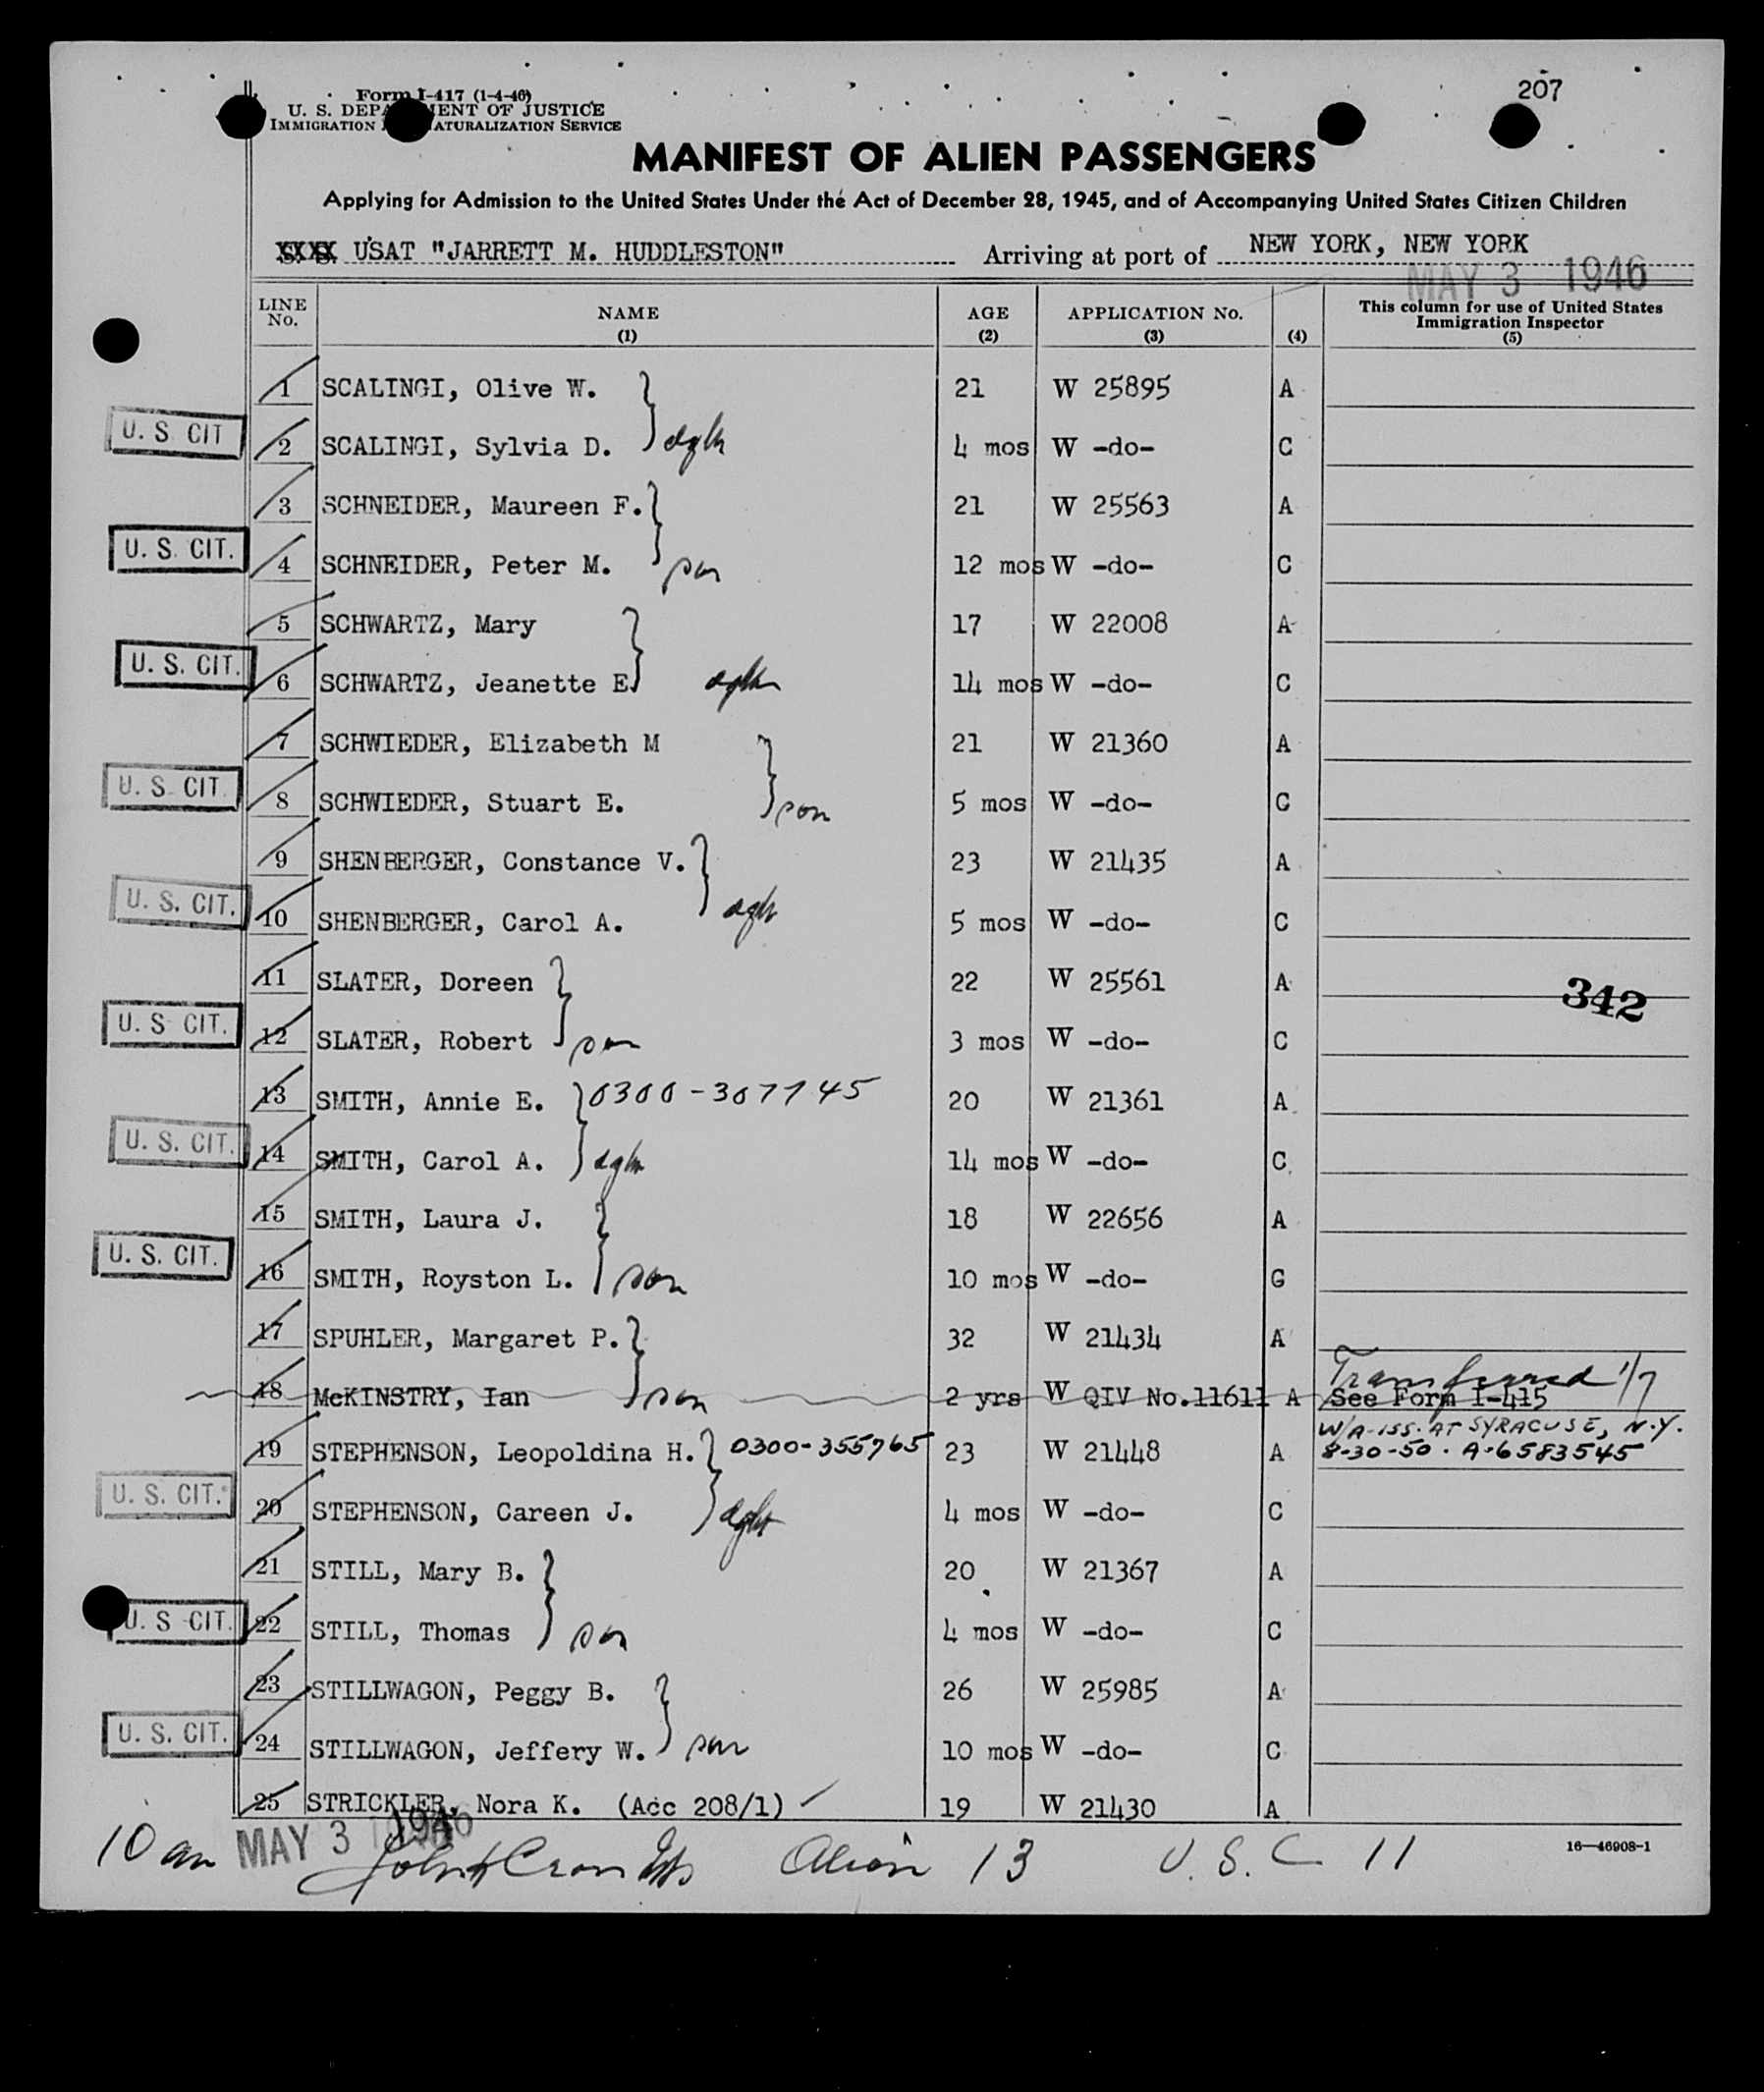 207
Form I-417 (1-4-46)
U. S. DEPARTMENT OF JUSTICE
IMMIGRATION NATURALIZATION SERVICE
MANIFEST OF ALIEN PASSENGERS
Applying for Admission to the United States Under the Act of December 28, 1945, and of Accompanying United States Citizen Children
USAT "JARRETT M. HUDDLESTON" Arriving at port of NEW YORK, NEW YORK
MAY 3 1946
LINE No. NAME (1) AGE (2) APPLICATION No. (3) (4) This column for use of United States Immigration Inspector (5)
1 SCALINGI, Olive W. 21 W 25895 A
U. S. CIT 2 SCALINGI, Sylvia D. dgh 4 mos W -do- C
3 SCHNEIDER, Maureen F. 21 W 25563 A
U. S. CIT. 4 SCHNEIDER, Peter M. son 12 mos W -do- C
5 SCHWARTZ, Mary 17 W 22008 A
U. S. CIT. 6 SCHWARTZ, Jeanette E. 14 mos W -do- C
7 SCHWIEDER, Elizabeth M 21 W 21360 A
U. S. CIT 8 SCHWIEDER, Stuart E. son 5 mos W -do- C
9 SHENBERGER, Constance V. 23 W 21435 A
U. S. CIT. 10 SHENBERGER, Carol A. 5 mos W -do- C
11 SLATER, Doreen 22 W 25561 A 342
U. S CIT. 12 SLATER, Robert son 3 mos W -do- C
13 SMITH, Annie E. 0300-307745 20 W 21361 A
U. S. CIT. 14 SMITH, Carol A. 14 mos W -do- C
15 SMITH, Laura J. 18 W 22656 A
U. S. CIT. 16 SMITH, Royston L. son 10 mos W -do- C
17 SPUHLER, Margaret P. 32 W 21434 A
Transferred 1/7
18 McKINSTRY, Ian son 2 yrs W QIV No.11611 A See Form I-415
W/A-ISS. AT SYRACUSE, N.Y.
19 STEPHENSON, Leopoldina H. 0300-355765 23 W 21448 A 8-30-50. A-6583545
U. S. CIT. 20 STEPHENSON, Careen J. dght 4 mos W -do- C
21 STILL, Mary B. 20 W 21367 A
U. S CIT. 22 STILL, Thomas son 4 mos W -do- C
23 STILLWAGON, Peggy B. 26 W 25985 A
U. S. CIT. 24 STILLWAGON, Jeffery W. son 10 mos W -do- C
25 STRICKLER, Nora K. (Acc 208/1) 19 W 21430 A
10 am MAY 3 1946 Alien 13 U. S. C 11
16—46908-1